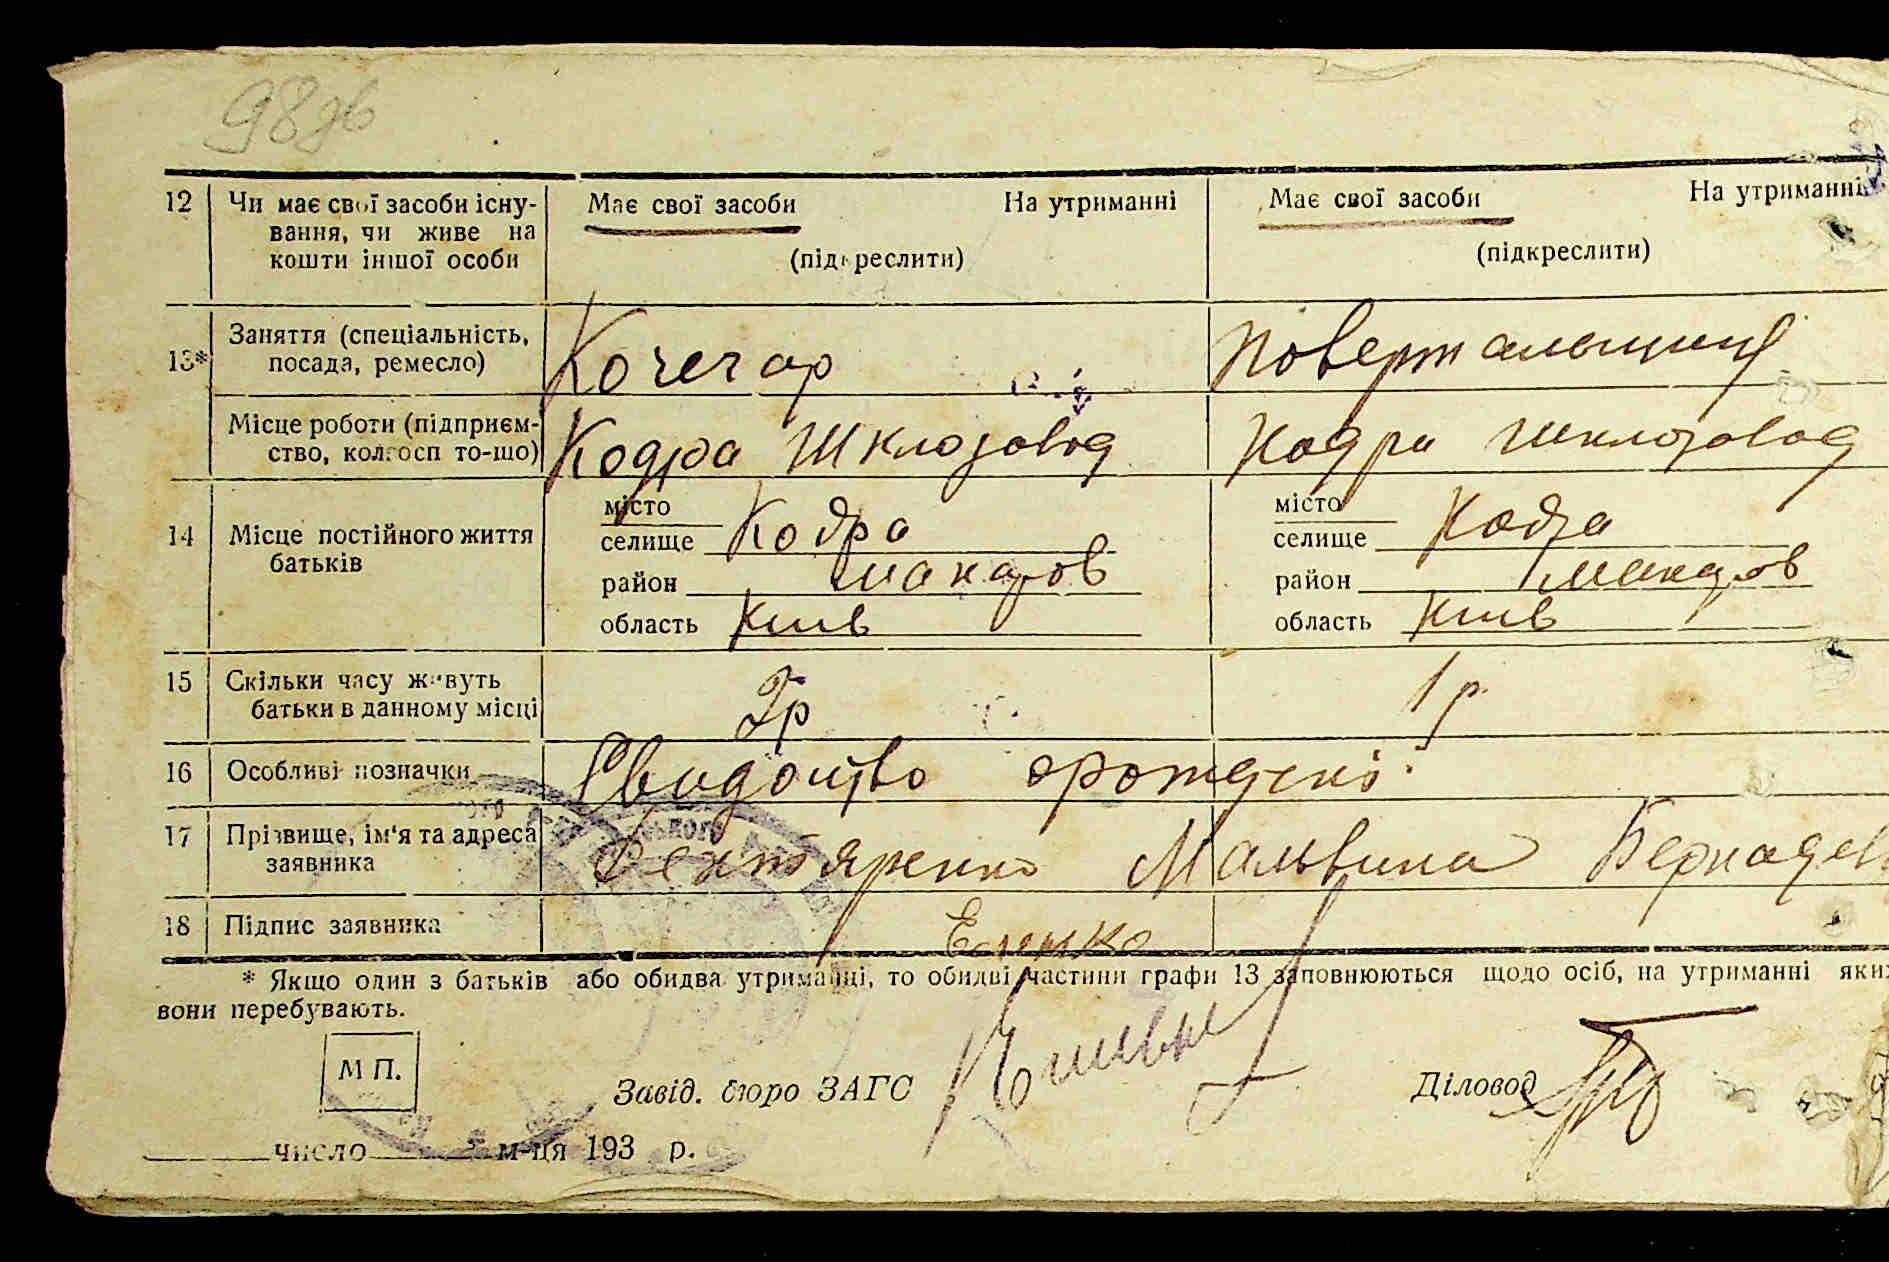 98зв
12 Чи має свої засоби існування, чи живе на кошти іншої особи
Має свої засоби На утриманні
(підкреслити)
Має свої засоби На утриманні
(підкреслити)
13* Заняття (спеціальність, посада, ремесло)
Кочегар
Місце роботи (підприємство, колгосп то-що)
Кодра Шклозавод
Кодра шклозавод
14 Місце постійного життя батьків
місто
селище Кодра
район Макаров
область Київ
місто
селище Кодра
район Макаров
область Київ
15 Скільки часу живуть батьки в данному місці
2р
1р
16 Особливі позначки
Свидоцтво
17 Прізвище, ім'я та адреса заявника
Мальвина
18 Підпис заявника
* Якщо один з батьків або обидва утриманці, то обидві частини графи 13 заповнюються щодо осіб, на утриманні яких
вони перебувають.
М П.
Завід. бюро ЗАГС
Діловод
число м-ця 193 р.